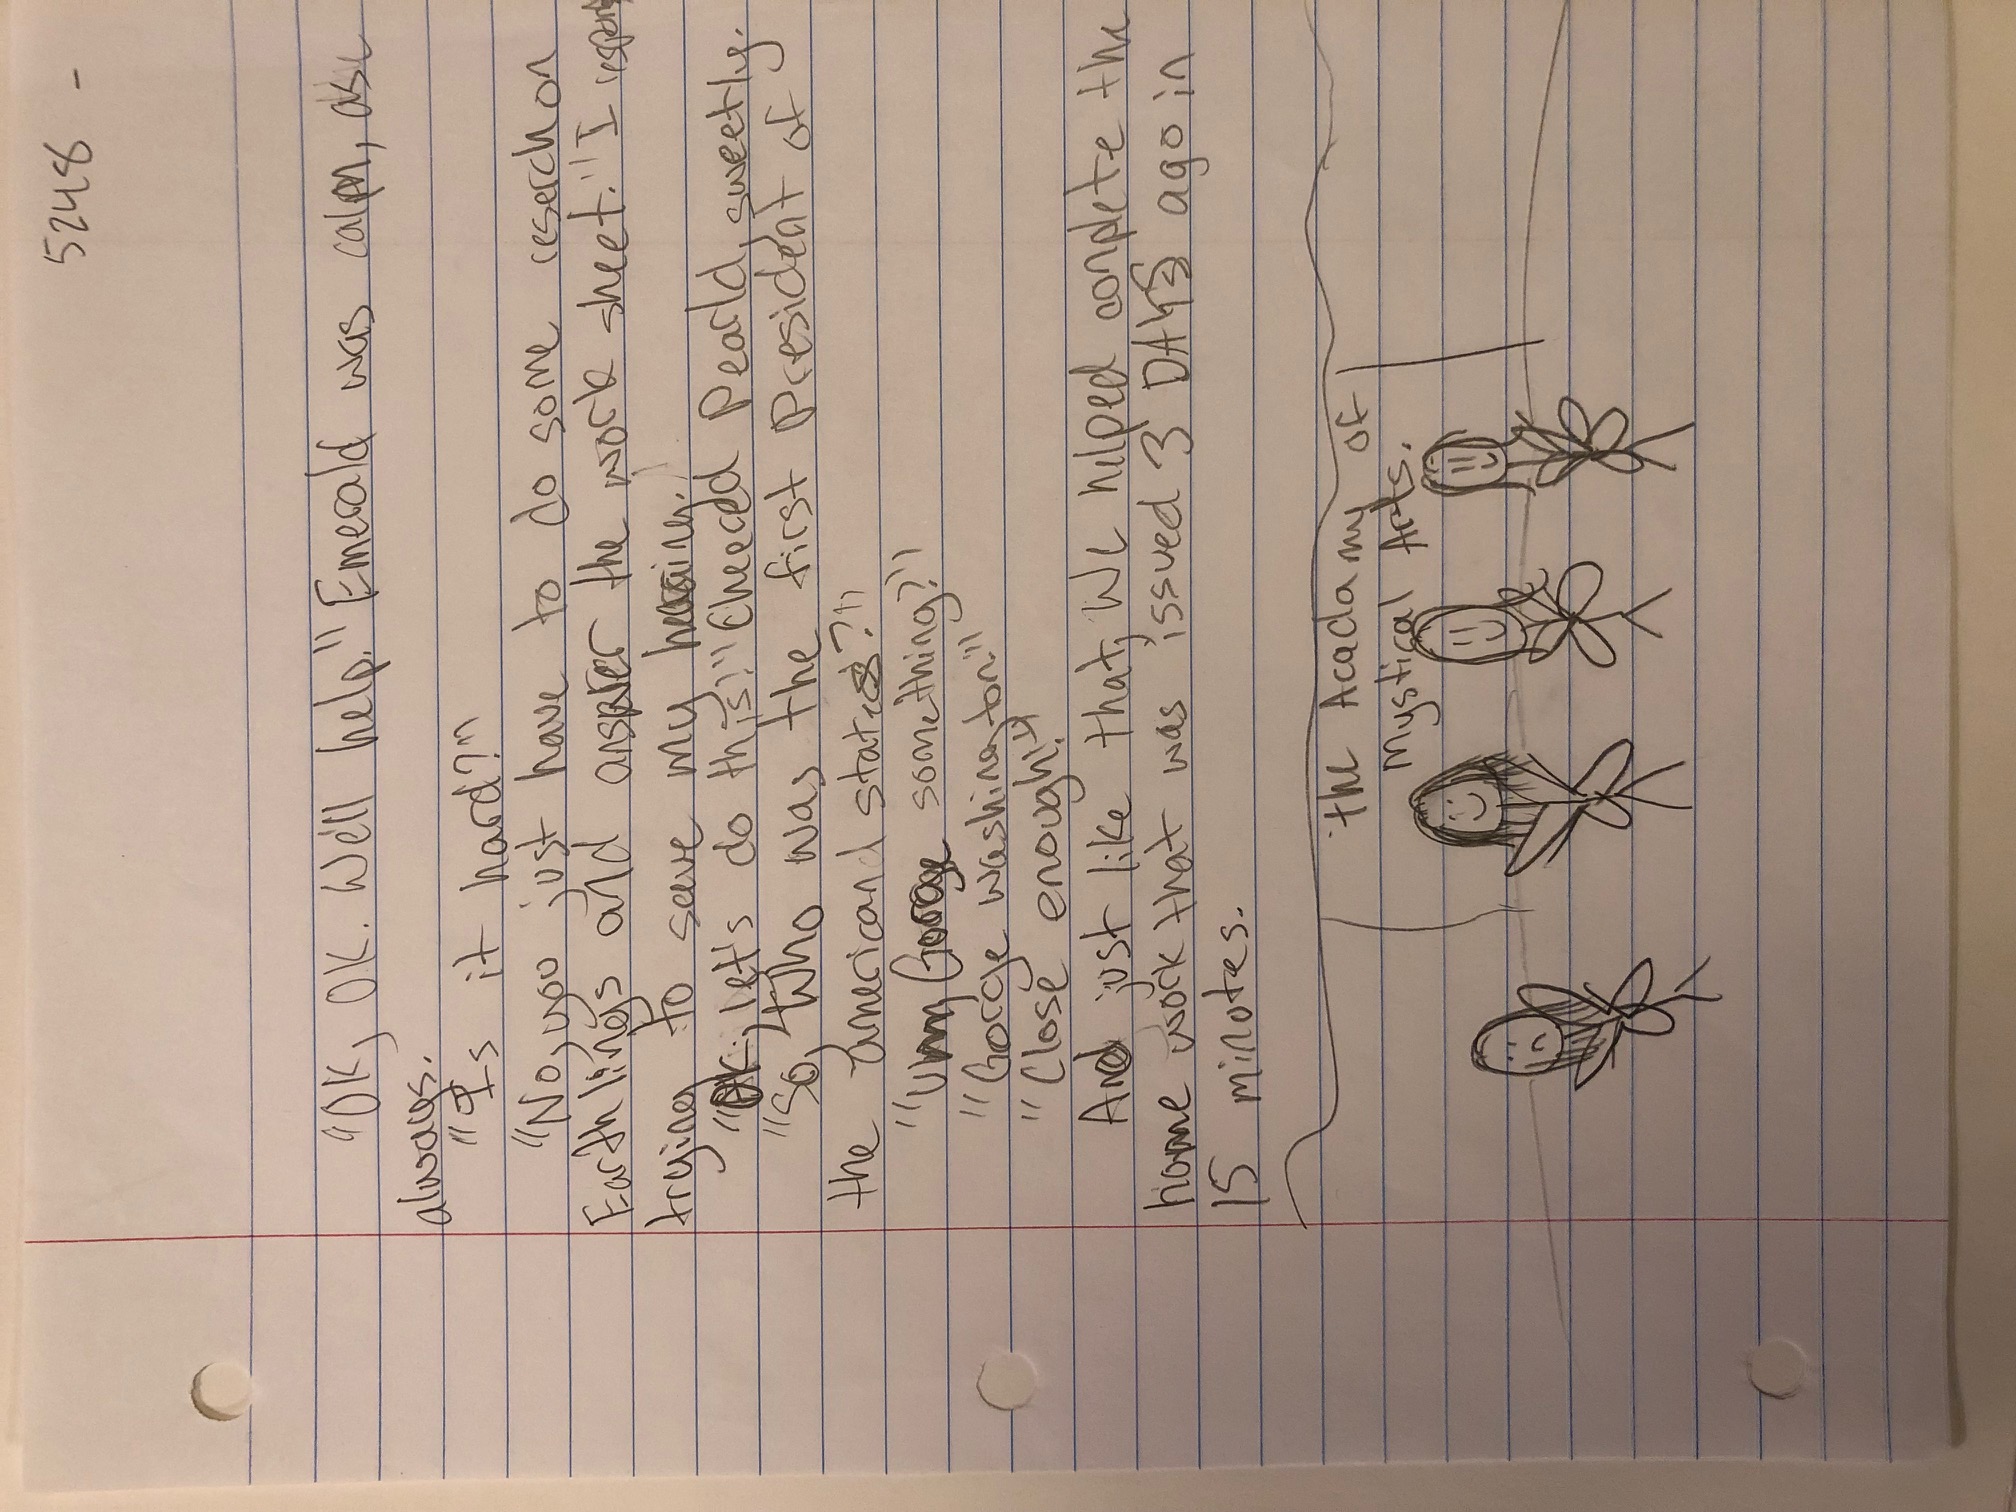 5248 -
"OK, OK. We'll help." Emerald was calm, as
always.
"Is it hard?"
"No, you just have to do some reserch on
Earthlings and answer the work sheet." I
trying to save my hearing.
"OK, let's do this!" Cheered Pearld, sweetly.
"So, Who was the first President of
the americand states?"
"Umm, George something?"
"Gorge washington."
"Close enough!"
And just like that, we helped conplete the
home work that was issued 3 DAYS ago in
15 minotes.
the Acadamy of
Mystical Arts.